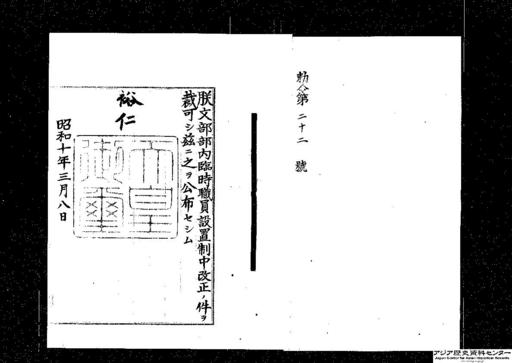 勅令第二十二號
朕文部部內臨時職員設置制中改正ノ件ヲ
裁可シ茲ニ之ヲ公布セシム
裕仁
天皇御璽
昭和十年三月八日
アジア歴史資料センター
Japan Center for Asian Historical Records